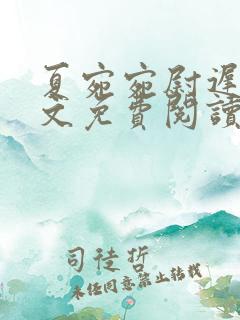 夏宛宛尉遲
文免費閱讀
司徒哲
未经同意禁止转载